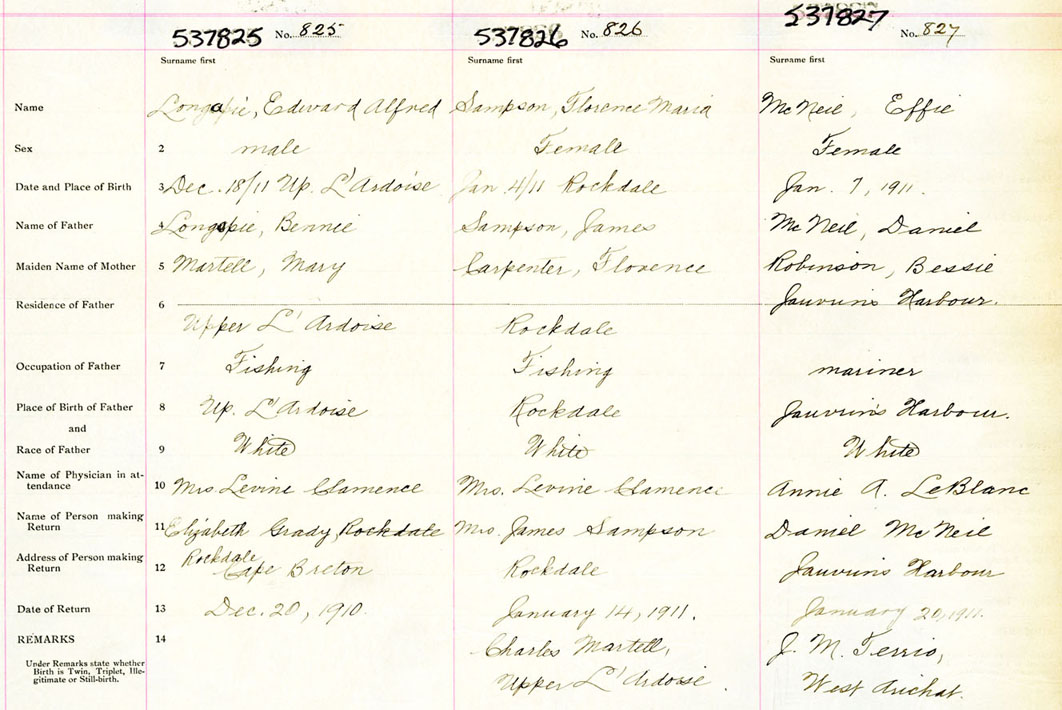 537825 No. 825 537826 No. 826 537827 No. 827
Surname first Surname first Surname first
Name Longapie, Edward Alfred Sampson, Florence Maria McNeil, Effie
Sex 2 male Female Female
Date and Place of Birth 3 Dec. 18/11 Up. L'Ardoise Jan 4/11 Rockdale Jan. 7, 1911.
Name of Father 4 Longapie, Bennie Sampson, James McNeil, Daniel
Maiden Name of Mother 5 Martell, Mary Carpenter, Florence Robinson, Bessie
Residence of Father 6 Upper L'Ardoise Rockdale Jauvrins Harbour.
Occupation of Father 7 Fishing Fishing mariner
Place of Birth of Father 8 Up. L'Ardoise Rockdale Jauvrins Harbour.
and
Race of Father 9 White White White
Name of Physician in at-
tendance 10 Mrs Levine Clamence Mrs. Levine Clamence Annie A. LeBlanc
Name of Person making
Return 11 Elizabeth Grady, Rockdale Mrs. James Sampson Daniel McNeil
Address of Person making
Return 12 Rockdale Cape Breton Rockdale Jauvrins Harbour
Date of Return 13 Dec. 20, 1910. January 14, 1911. January 20, 1911.
REMARKS 14 Charles Martell, J. M. Terrio,
Under Remarks state whether
Birth is Twin, Triplet, Ille-
gitimate or Still-birth.
Upper L'Ardoise. West Arichat.